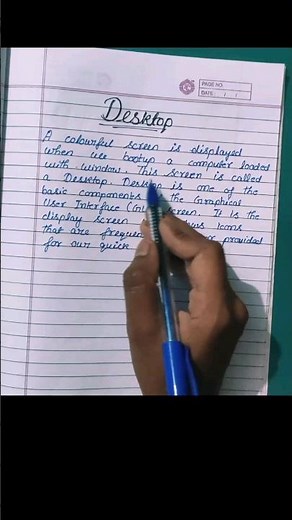 PAGE NO.
DATE: / /
Desktop
A colourful screen is displayed
when we bootup a computer loaded
with window. This screen is called
a Desktop. Desktop is one of the
basic components the Graphical
User Interface screen. It is the
display screen icons
that are provided
for our quick